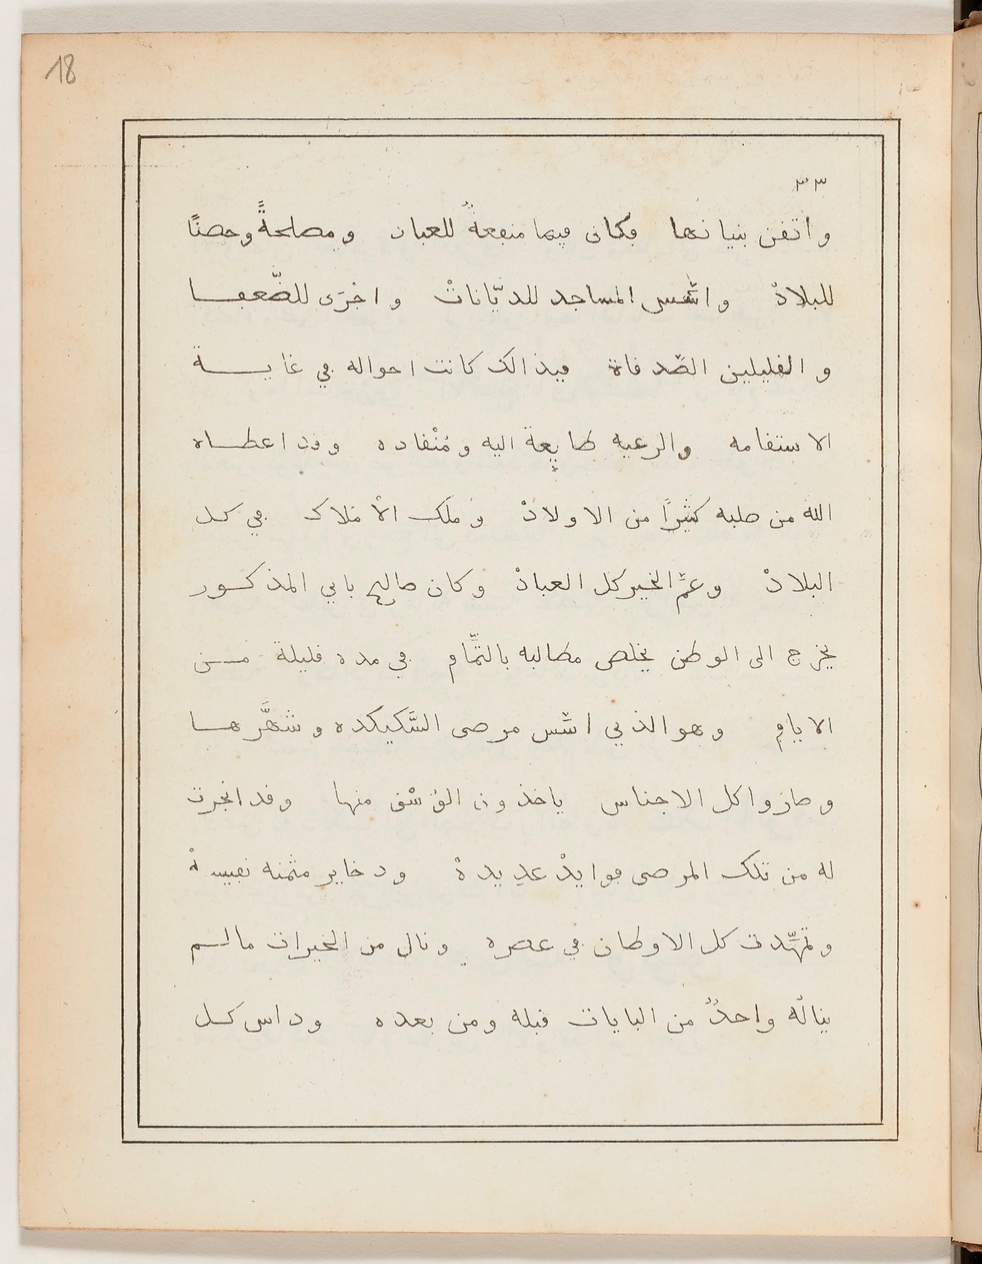 18
٣٣
واتقن بنيانها فكان فيها منفعةٌ للعباد ومصلحةً وحصنًا
للبلادْ واسّس المساجد للديّاناتْ واخرَى للضّعفا
والقليلين الصّدقاة فبذالك كانت احواله في غاية
الاستقامه والرعيه طايعة اليه ومُنْقاده وقد اعطاه
الله من صلبه كثيرًا من الاولادْ وملَك الأملاك في كل
البلادْ وعمَّ الخير كل العبادْ وكان صالح باي المذكور
يخرج الى الوطن يخلص مطالبه بالتّمام في مده قليلة من
الايام وهو الذي اسّس مرصى السَّكيكده وشهَّرها
وصازوا كل الاجناس ياخذون القْشْق منها وقد انجرت
له من تلك المرصى فوايدْ عديدةْ ودخاير مثمنه نفيسةْ
وتمهّدت كل الاوطان في عصره ونال من الخيرات مالم
ينالَه واحدٌ من البايات قبله ومن بعده وداس كل